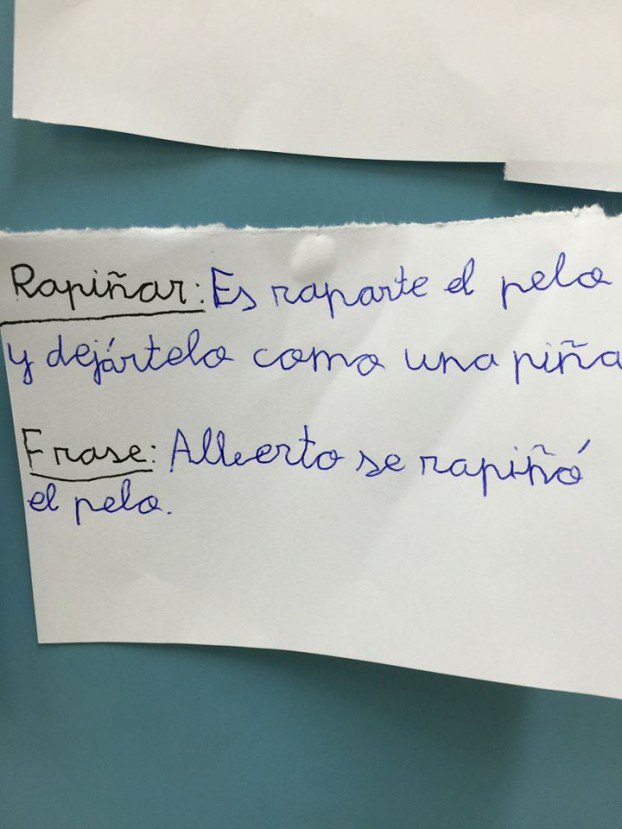 Rapiñar: Es raparte el pelo
y dejártelo como una piña
Frase: Alberto se rapiñó
el pelo.